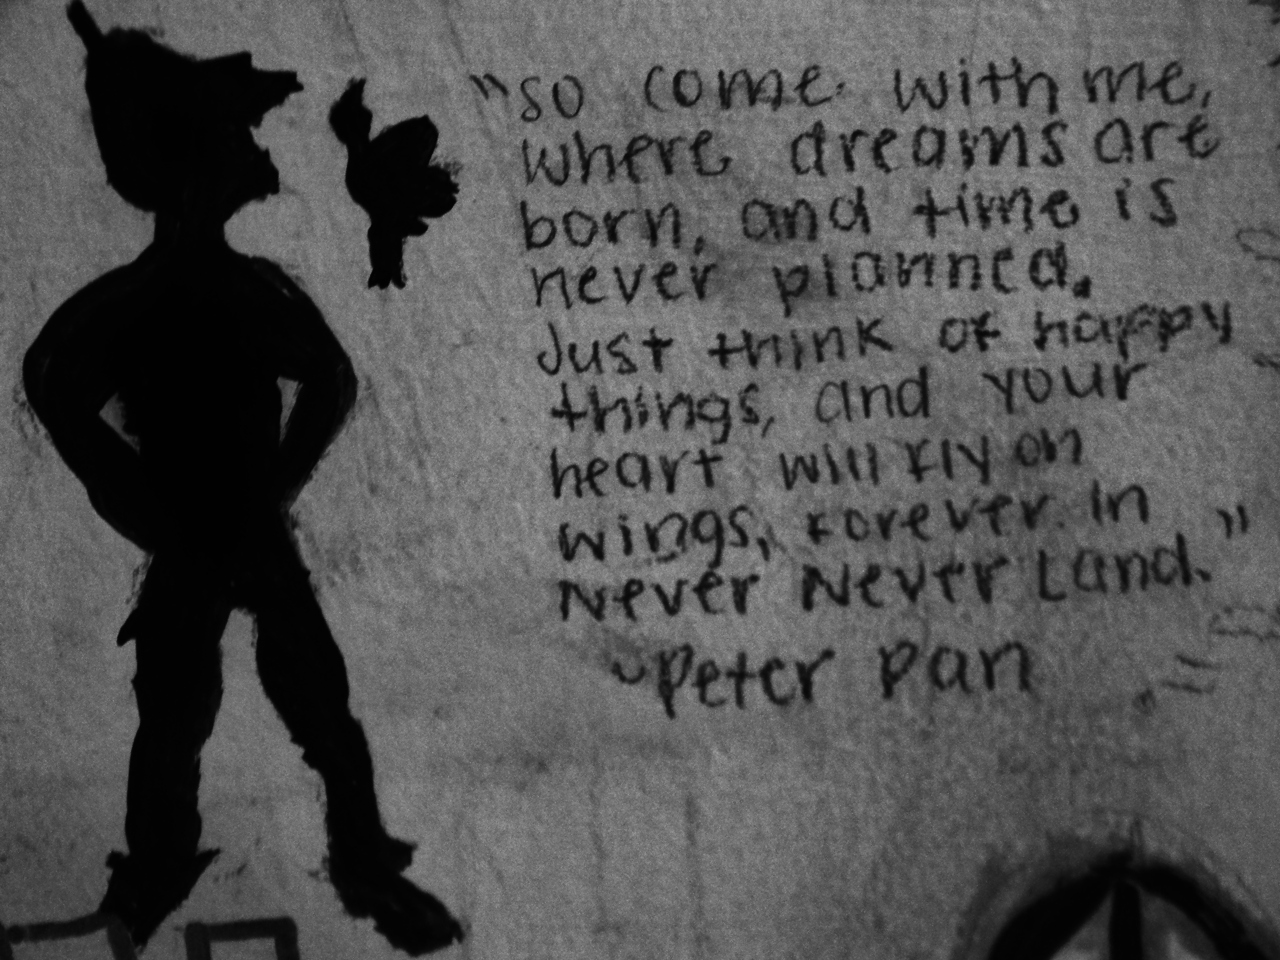 "so come with me,
where dreams are
born, and time is
never planned.
Just think of happy
things, and your
heart will fly on
wings, forever in
Never Never Land."
~Peter Pan